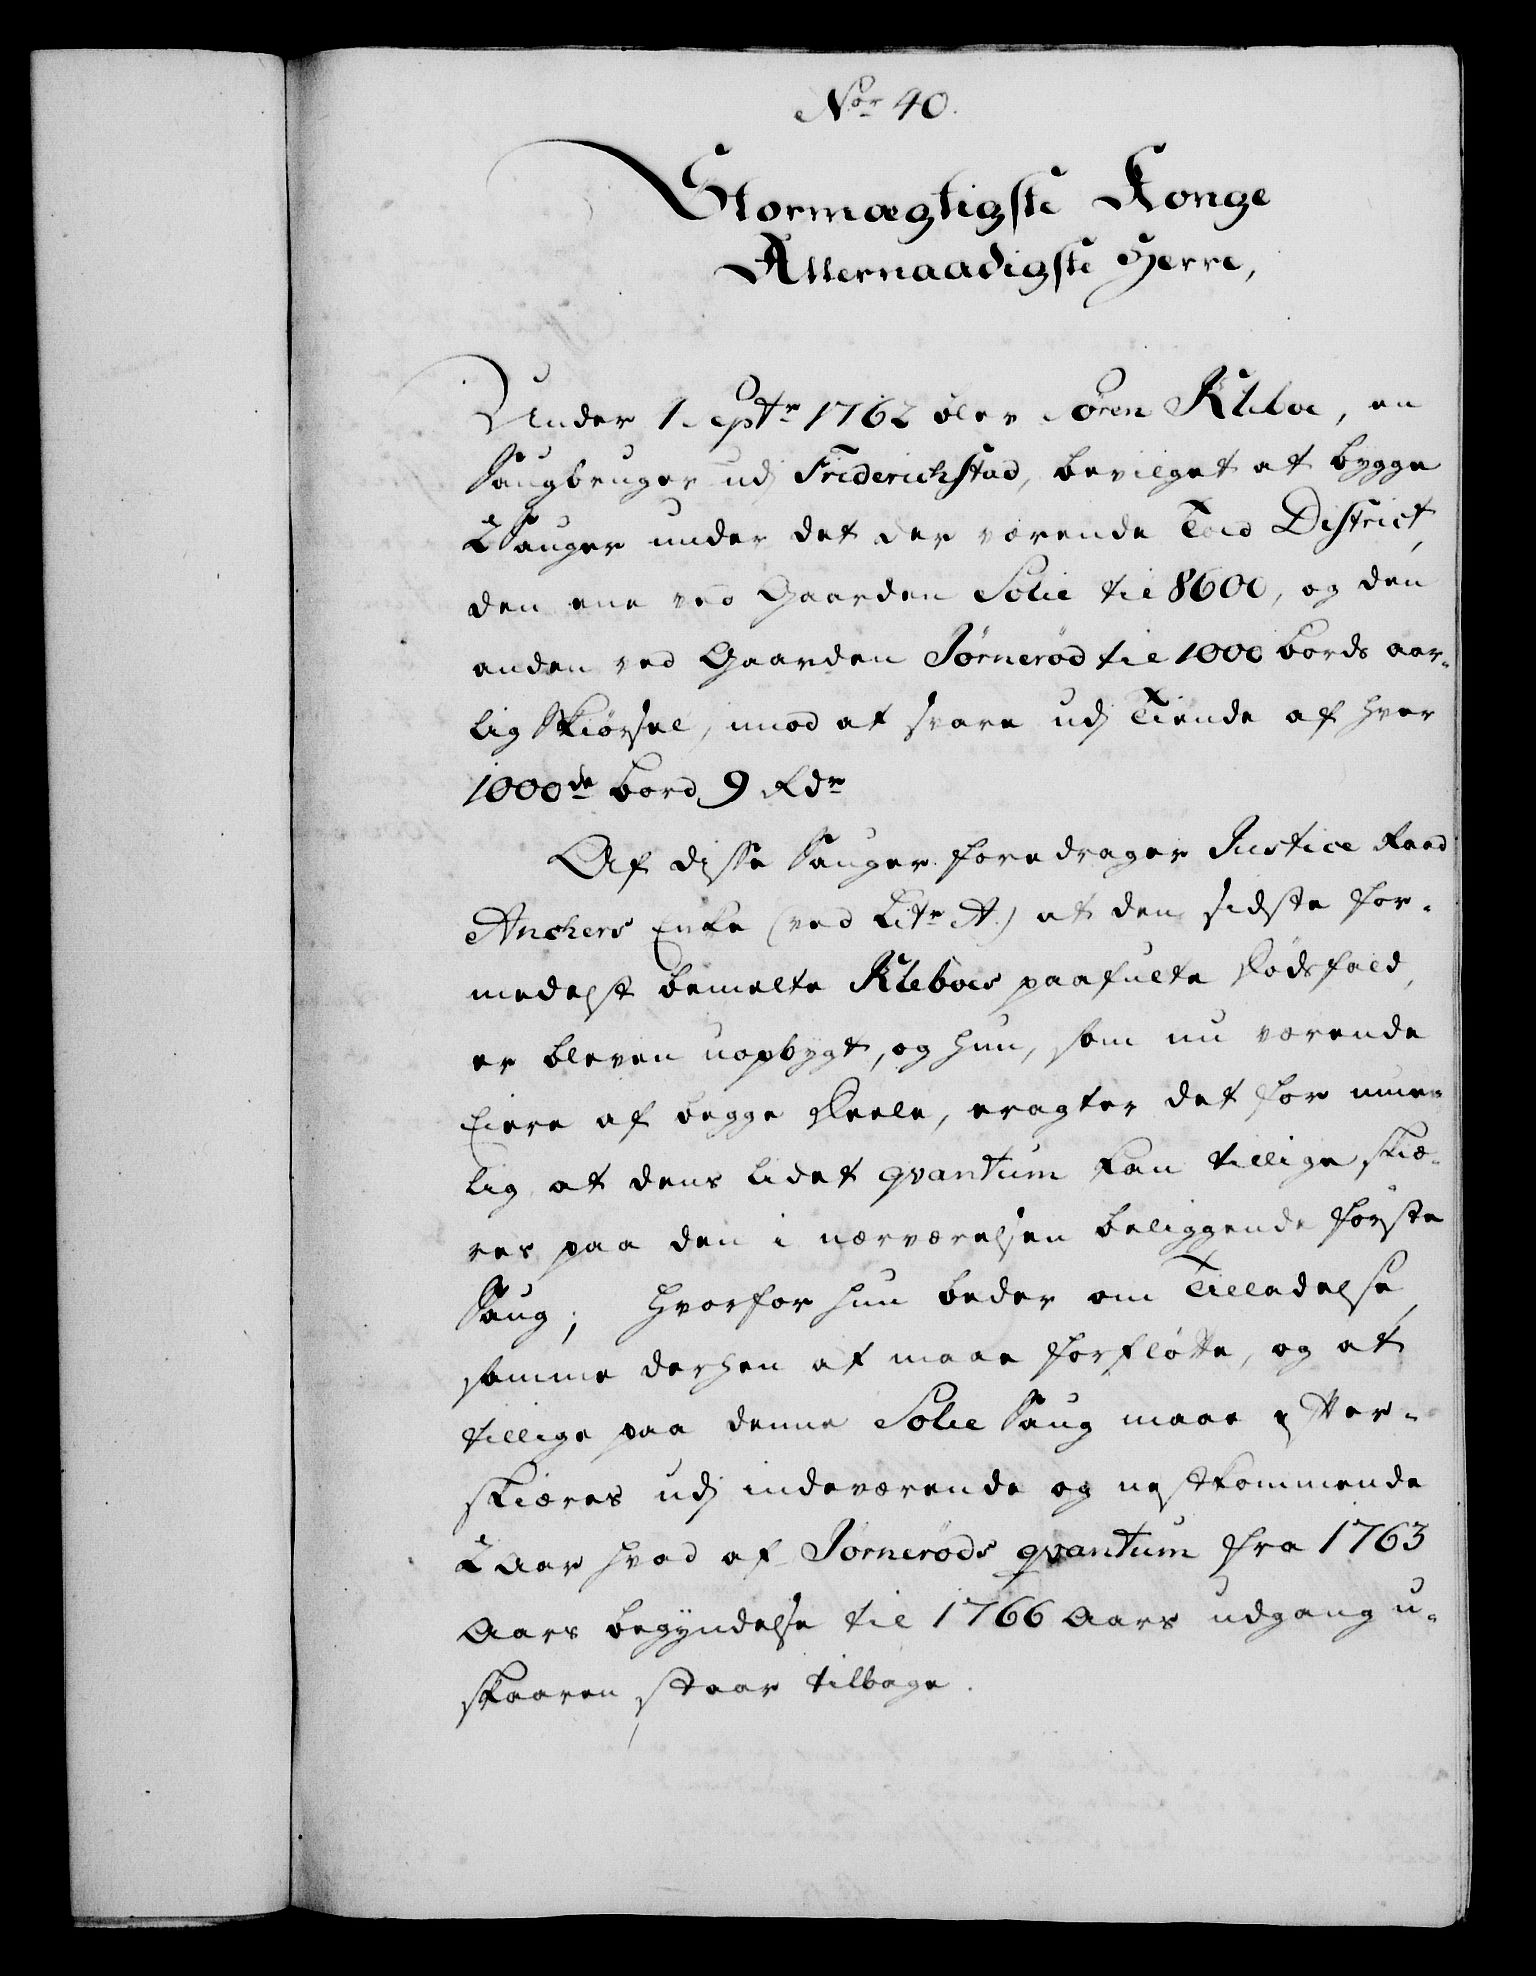 Nor 40.
Stormægtigste Konge
Allernaadigste Herre,
Under 1 Septr 1762 blev Søren Kleboe, en
Saugbruger udj Friderichstad, bevilget at bygge
2 Sauger under det der værende Told District,
den ene ved Gaarden Solie til 8600, og den
anden ved Gaarden Jørnerød til 1000 bords aar-
lig Skiørsel, imod at svare udj Tiende af hver
1000de bord 9 Rdr
Af disse Sauger foredrager Justice Raad
Anchers Enke (ved Litr A.) at den sidste for-
medelst bemelte Kleboes paafulte Dødsfald,
er bleven uopbygt, og hun, som nu værende
Eiere af begge Deele, eragter det for umue-
lig at dens lidet qvantum kan tillige skiæ-
res paa den i nærværelsen beliggende første
Saug; hvorfor hun beder om Tilladelse,
samme derhen at maae forfløtte, og at
tillige paa denne Solie Saug maae efter-
skiæres udj indeværende og nestkommende
2 Aar hvad af Jørnerøds qvantum fra 1763
Aars begyndelse til 1766 Aars udgang u-
skaaren staar tilbage.